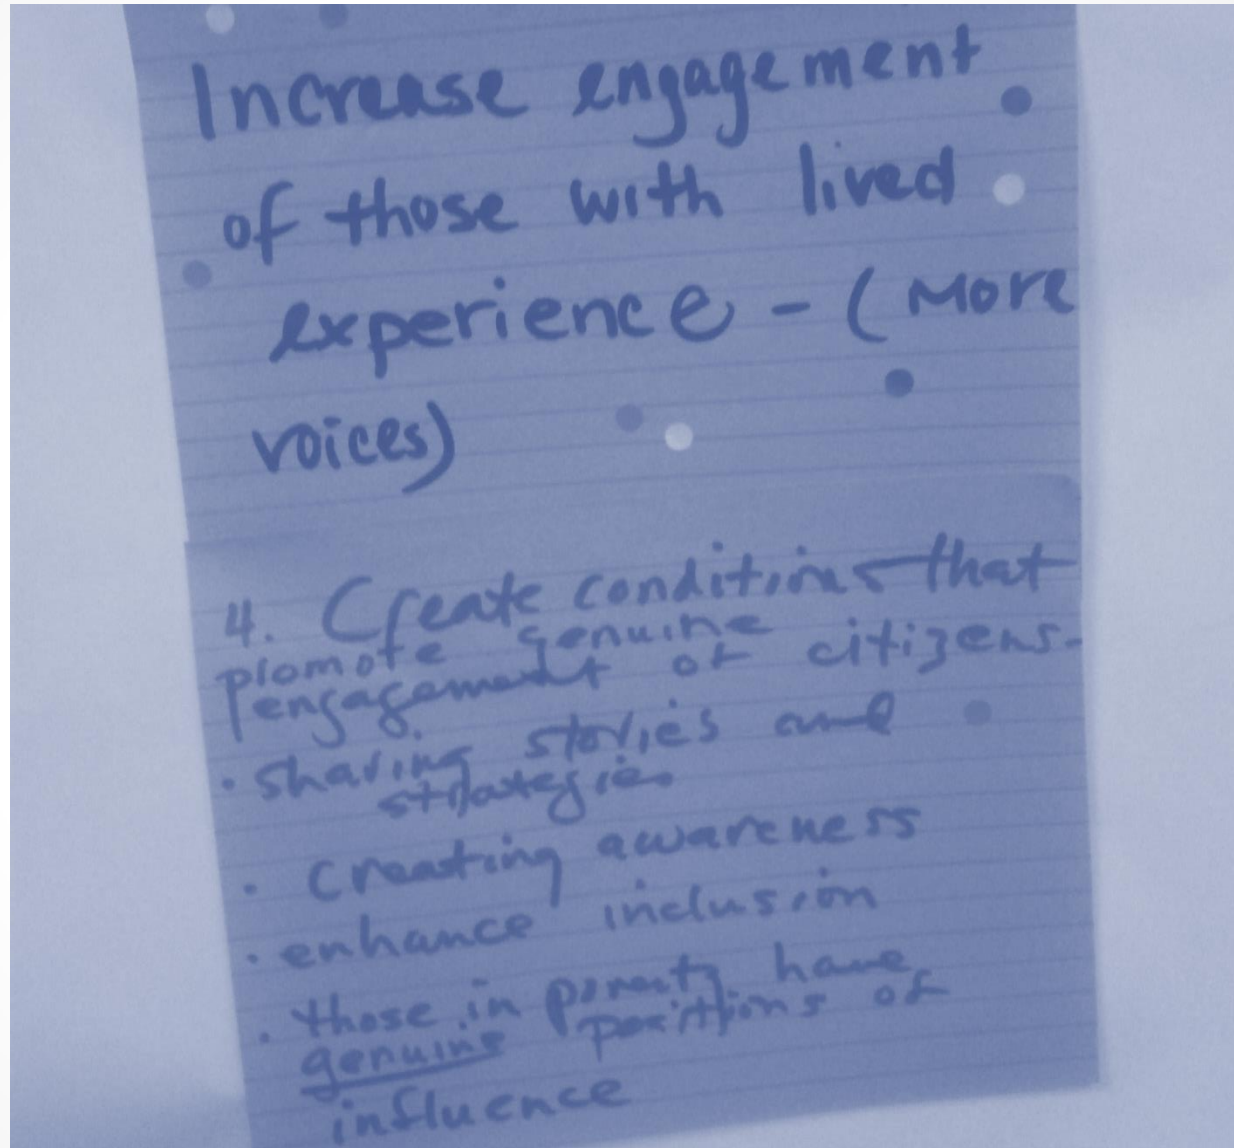 Increase engagement
of those with lived
experience - (More
voices)
4. Create conditions that
promote genuine
engagement of citizens-
• sharing stories and
strategies
• creating awareness
• enhance inclusion
• those in poverty have
genuine positions of
influence